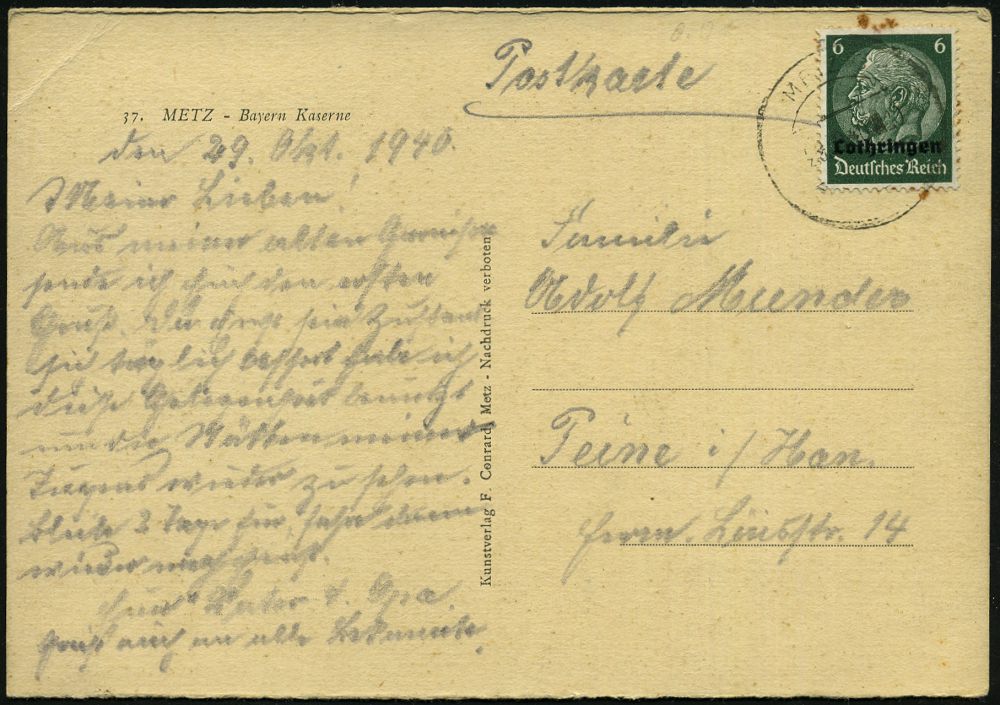 Postkarte
6 6
Lothringen
Deutsches Reich
37. METZ - Bayern Kaserne
den 29. Okt. 1940.
Meine Lieben!
Aus meiner alten Garnison
sende ich Euch den ersten
Gruß. Da
sie täglich bessert habe ich
diese Gelegenheit benutzt
um die Stätten meiner
Jugend wieder zu sehen.
Bleibe 3 Tage hier, fahr dann
wieder nach
Euer Vater u. Opa.
Grüßt auch an alle Bekannte.
Kunstverlag F. Conrard, Metz - Nachdruck verboten
Familie
Adolf Munder
Peine i/Han.
Herm. Lönsstr. 14